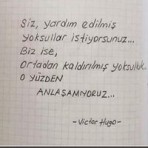 Siz, yardım edilmiş
yoksullar istiyorsunuz...
Biz ise,
Ortadan kaldırılmış yoksulluk.
O YÜZDEN
ANLAŞAMIYORUZ...
-Victor Hugo-